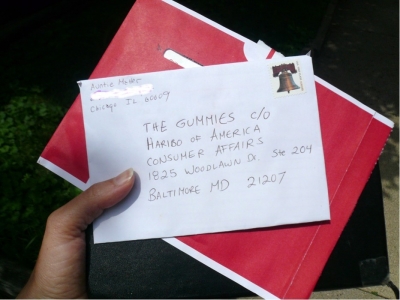 Auntie
Chicago IL 60609
THE GUMMIES C/O
HARIBO OF AMERICA
CONSUMER AFFAIRS
1825 WOODLAWN DR. Ste 204
BALTIMORE MD 21207